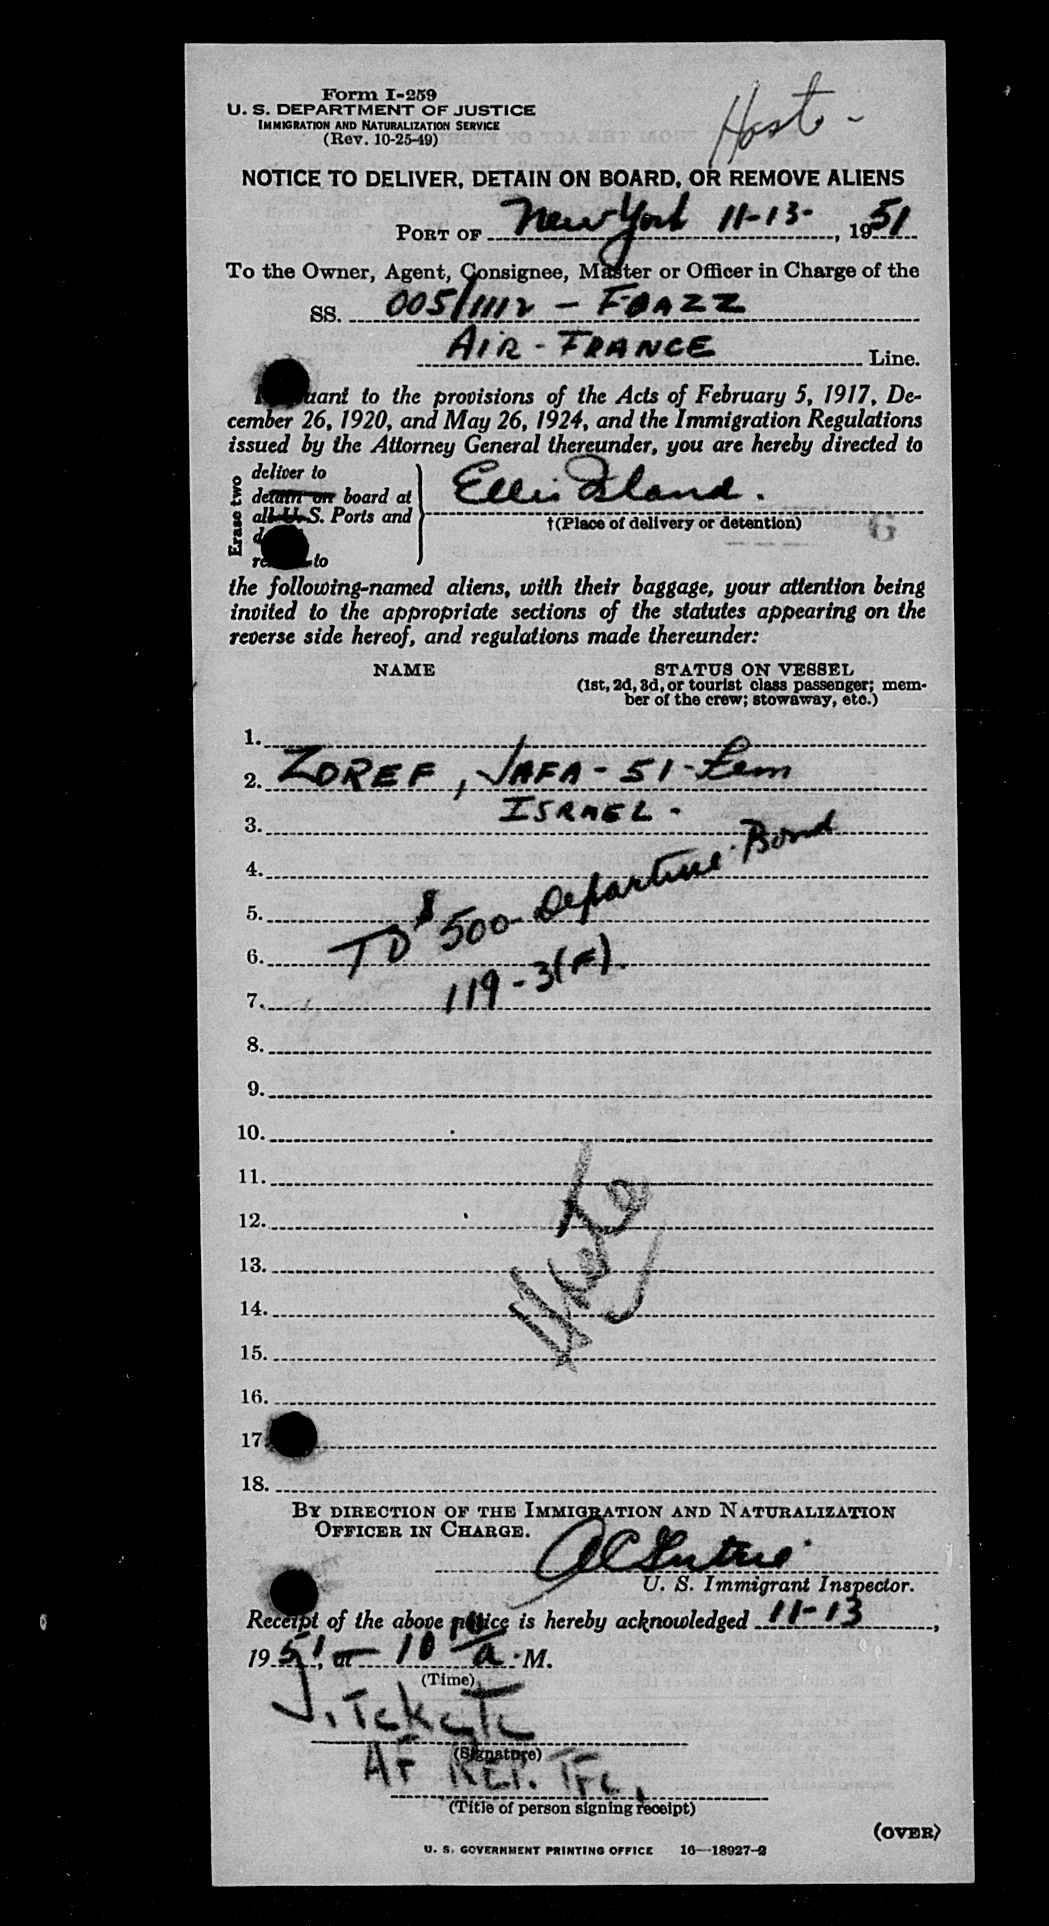 Form I-259
U. S. DEPARTMENT OF JUSTICE
IMMIGRATION AND NATURALIZATION SERVICE
(Rev. 10-25-49)
NOTICE TO DELIVER, DETAIN ON BOARD, OR REMOVE ALIENS
PORT OF New York 11-13-, 1951
To the Owner, Agent, Consignee, Master or Officer in Charge of the
SS. 005/1112 - FBAZZ
AIR-FRANCE Line.
to the provisions of the Acts of February 5, 1917, De-
cember 26, 1920, and May 26, 1924, and the Immigration Regulations
issued by the Attorney General thereunder, you are hereby directed to
Erase two
deliver to
detain on board at
all U. S. Ports and
to
Ellis Island.
†(Place of delivery or detention)
the following-named aliens, with their baggage, your attention being
invited to the appropriate sections of the statutes appearing on the
reverse side hereof, and regulations made thereunder:
NAME STATUS ON VESSEL
(1st, 2d, 3d, or tourist class passenger; mem-
ber of the crew; stowaway, etc.)
1.
2. ZOREF, JAFA - 51 - Fem
ISRAEL -
3.
4.
5.
6. TD $500- Departure Bond
7. 119-3(F).
8.
9.
10.
11.
12.
13.
14.
15.
16.
17
18.
BY DIRECTION OF THE IMMIGRATION AND NATURALIZATION
OFFICER IN CHARGE.
U. S. Immigrant Inspector.
Receipt of the above notice is hereby acknowledged 11-13,
1951, at 10 a. M.
(Time)
(Signature)
AF REP. TFC.
(Title of person signing receipt)
(OVER)
U. S. GOVERNMENT PRINTING OFFICE 16—18927-2